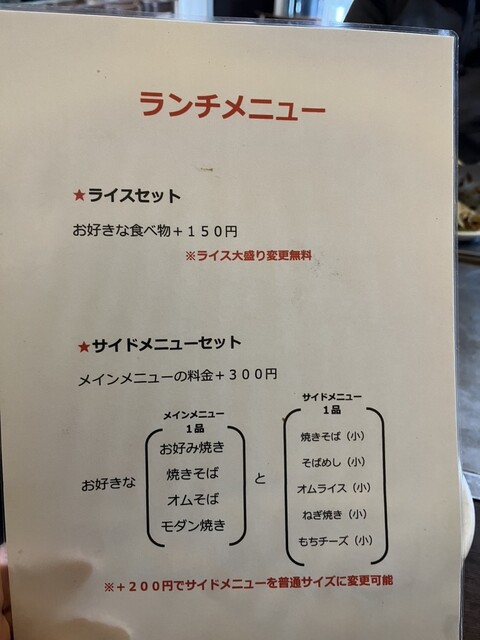 ランチメニュー
★ライスセット
お好きな食べ物＋１５０円
※ライス大盛り変更無料
★サイドメニューセット
メインメニューの料金＋３００円
メインメニュー
１品
お好み焼き
焼きそば
オムそば
モダン焼き
お好きな
と
サイドメニュー
１品
焼きそば（小）
そばめし（小）
オムライス（小）
ねぎ焼き（小）
もちチーズ（小）
※＋２００円でサイドメニューを普通サイズに変更可能